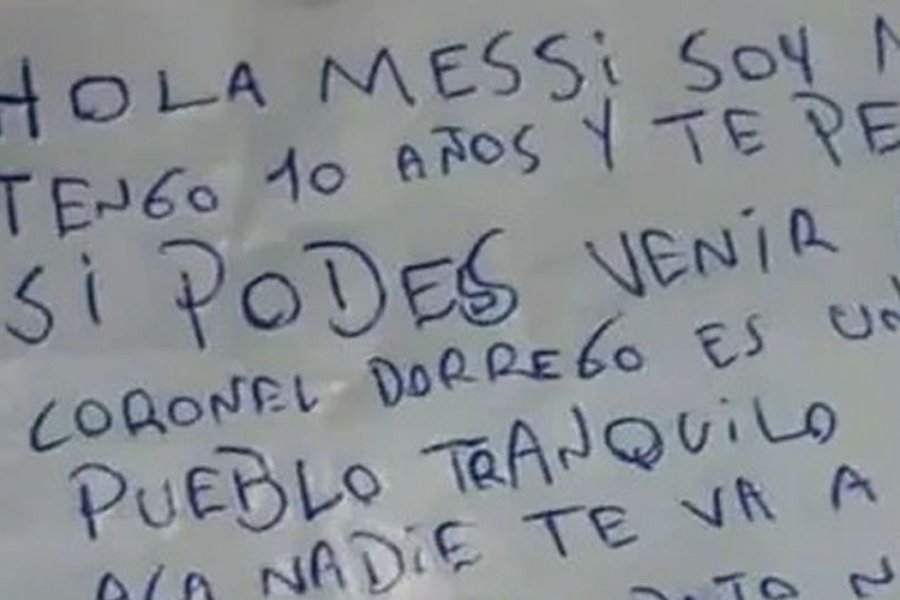 HOLA MESSi SOY
TENGO 10 AÑOS Y TE PE
Si PODES VENiR
CORONEL DORREGO ES UN
PUEBLO TRANQUiLO
ACA NADiE TE VA A